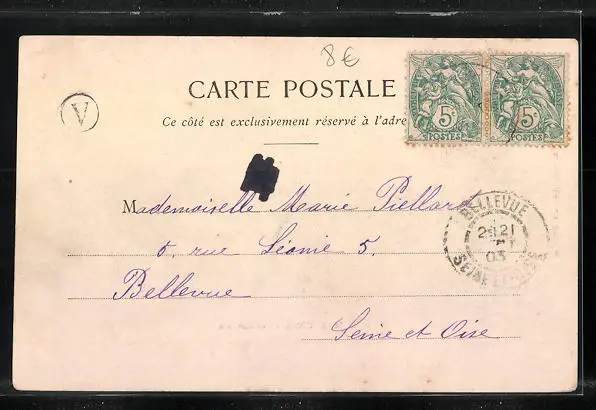 8€
CARTE POSTALE
Ce côté est exclusivement réservé à l'adre
V
5c 5c
POSTES POSTES
Mademoiselle Marie Piellard
rue Léonie 5.
Bellevue
Seine et Oise
BELLEVUE
21
03
SEINE ET